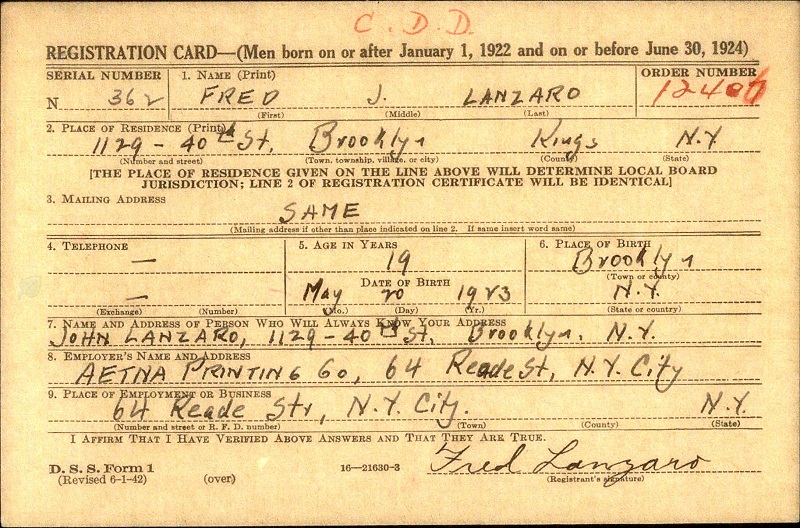 C. D. D.
REGISTRATION CARD—(Men born on or after January 1, 1922 and on or before June 30, 1924)
SERIAL NUMBER 1. NAME (Print) ORDER NUMBER
N 362 FRED J. LANZARO
(First) (Middle) (Last)
2. PLACE OF RESIDENCE (Print)
1129 - 40th St, Brooklyn Kings N.Y.
(Number and street) (Town, township, village, or city) (County) (State)
[THE PLACE OF RESIDENCE GIVEN ON THE LINE ABOVE WILL DETERMINE LOCAL BOARD
JURISDICTION; LINE 2 OF REGISTRATION CERTIFICATE WILL BE IDENTICAL]
3. MAILING ADDRESS
SAME
(Mailing address if other than place indicated on line 2. If same insert word same)
4. TELEPHONE 5. AGE IN YEARS 6. PLACE OF BIRTH
— 19 Brooklyn
(Town or county)
DATE OF BIRTH
— May 20 1923 N.Y.
(Exchange) (Number) (Mo.) (Day) (Yr.) (State or country)
7. NAME AND ADDRESS OF PERSON WHO WILL ALWAYS KNOW YOUR ADDRESS
JOHN LANZARO, 1129 - 40th St, Brooklyn, N.Y.
8. EMPLOYER'S NAME AND ADDRESS
AETNA PRINTING Co, 64 Reade St, N.Y. City
9. PLACE OF EMPLOYMENT OR BUSINESS
64 Reade Str, N.Y. City. N.Y.
(Number and street or R. F. D. number) (Town) (County) (State)
I AFFIRM THAT I HAVE VERIFIED ABOVE ANSWERS AND THAT THEY ARE TRUE.
D. S. S. Form 1 16—21630-3 Fred Lanzaro
(Revised 6-1-42) (over) (Registrant's signature)